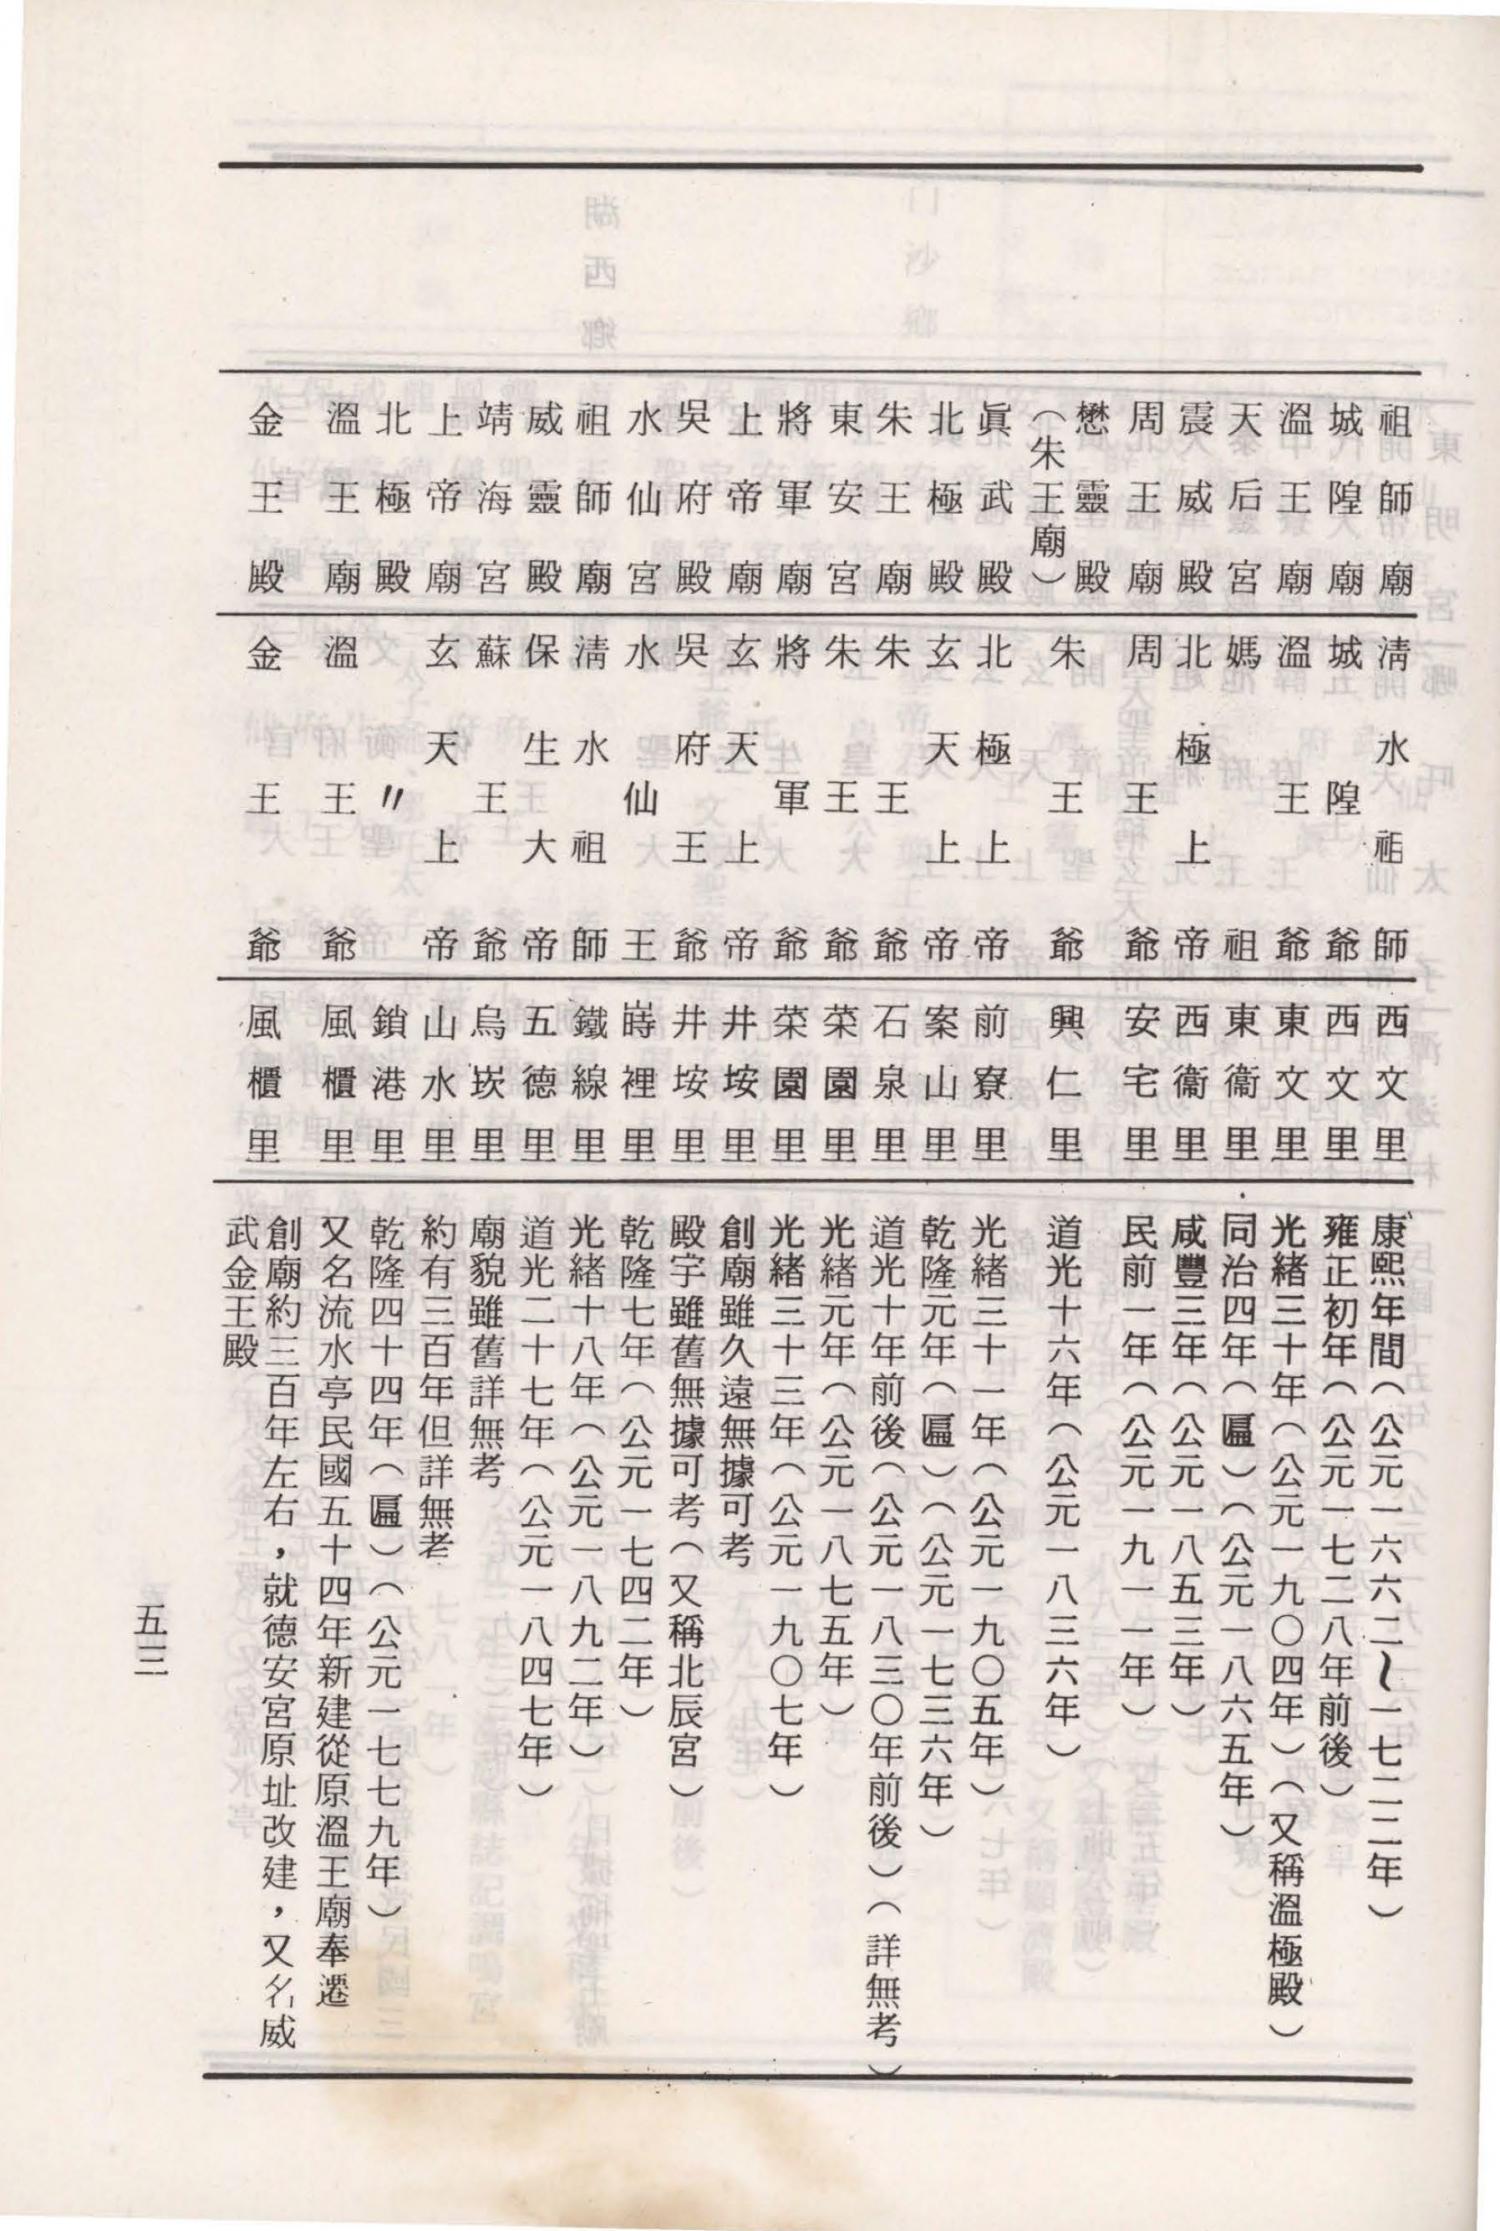 祖師廟 清水祖師 西文里 康熙年間（公元一六六二～一七二二年）
城隍廟 城隍爺 西文里 雍正初年（公元一七二八年前後）
溫王廟 溫王爺 東文里 光緒三十年（公元一九〇四年）（又稱溫極殿）
天后宮 媽祖 東衞里 同治四年（匾）（公元一八六五年）
震威殿 北極上帝 西衞里 咸豐三年（公元一八五三年）
周王廟 周王爺 安宅里 民前一年（公元一九一一年）
懋靈殿（朱王廟） 朱王爺 興仁里 道光十六年（公元一八三六年）
眞武殿 北極上帝 前寮里 光緒三十一年（公元一九〇五年）
北極殿 玄天上帝 案山里 乾隆元年（匾）（公元一七三六年）
朱王廟 朱王爺 石泉里 道光十年前後（公元一八三〇年前後）（詳無考）
東安宮 朱王爺 菜園里 光緒元年（公元一八七五年）
將軍廟 將軍爺 菜園里 光緒三十三年（公元一九〇七年）
上帝廟 玄天上帝 井垵里 創廟雖久遠無據可考
吳府殿 吳府王爺 井垵里 殿宇雖舊無據可考（又稱北辰宮）
水仙宮 水仙王 嵵裡里 乾隆七年（公元一七四二年）
祖師廟 清水祖師 鐵線里 光緒十八年（公元一八九二年）
威靈殿 保生大帝 五德里 道光二十七年（公元一八四七年）
靖海宮 蘇王爺 烏崁里 廟貌雖舊詳無考
上帝廟 玄天上帝 山水里 約有三百年但詳無考
北極殿 〃 鎖港里 乾隆四十四年（匾）（公元一七七九年）
溫王廟 溫王爺 風櫃里 又名流水亭民國五十四年新建從原溫王廟奉遷
金王殿 金王爺 風櫃里 創廟約三百年左右，就德安宮原址改建，又名威
武金王殿
五三